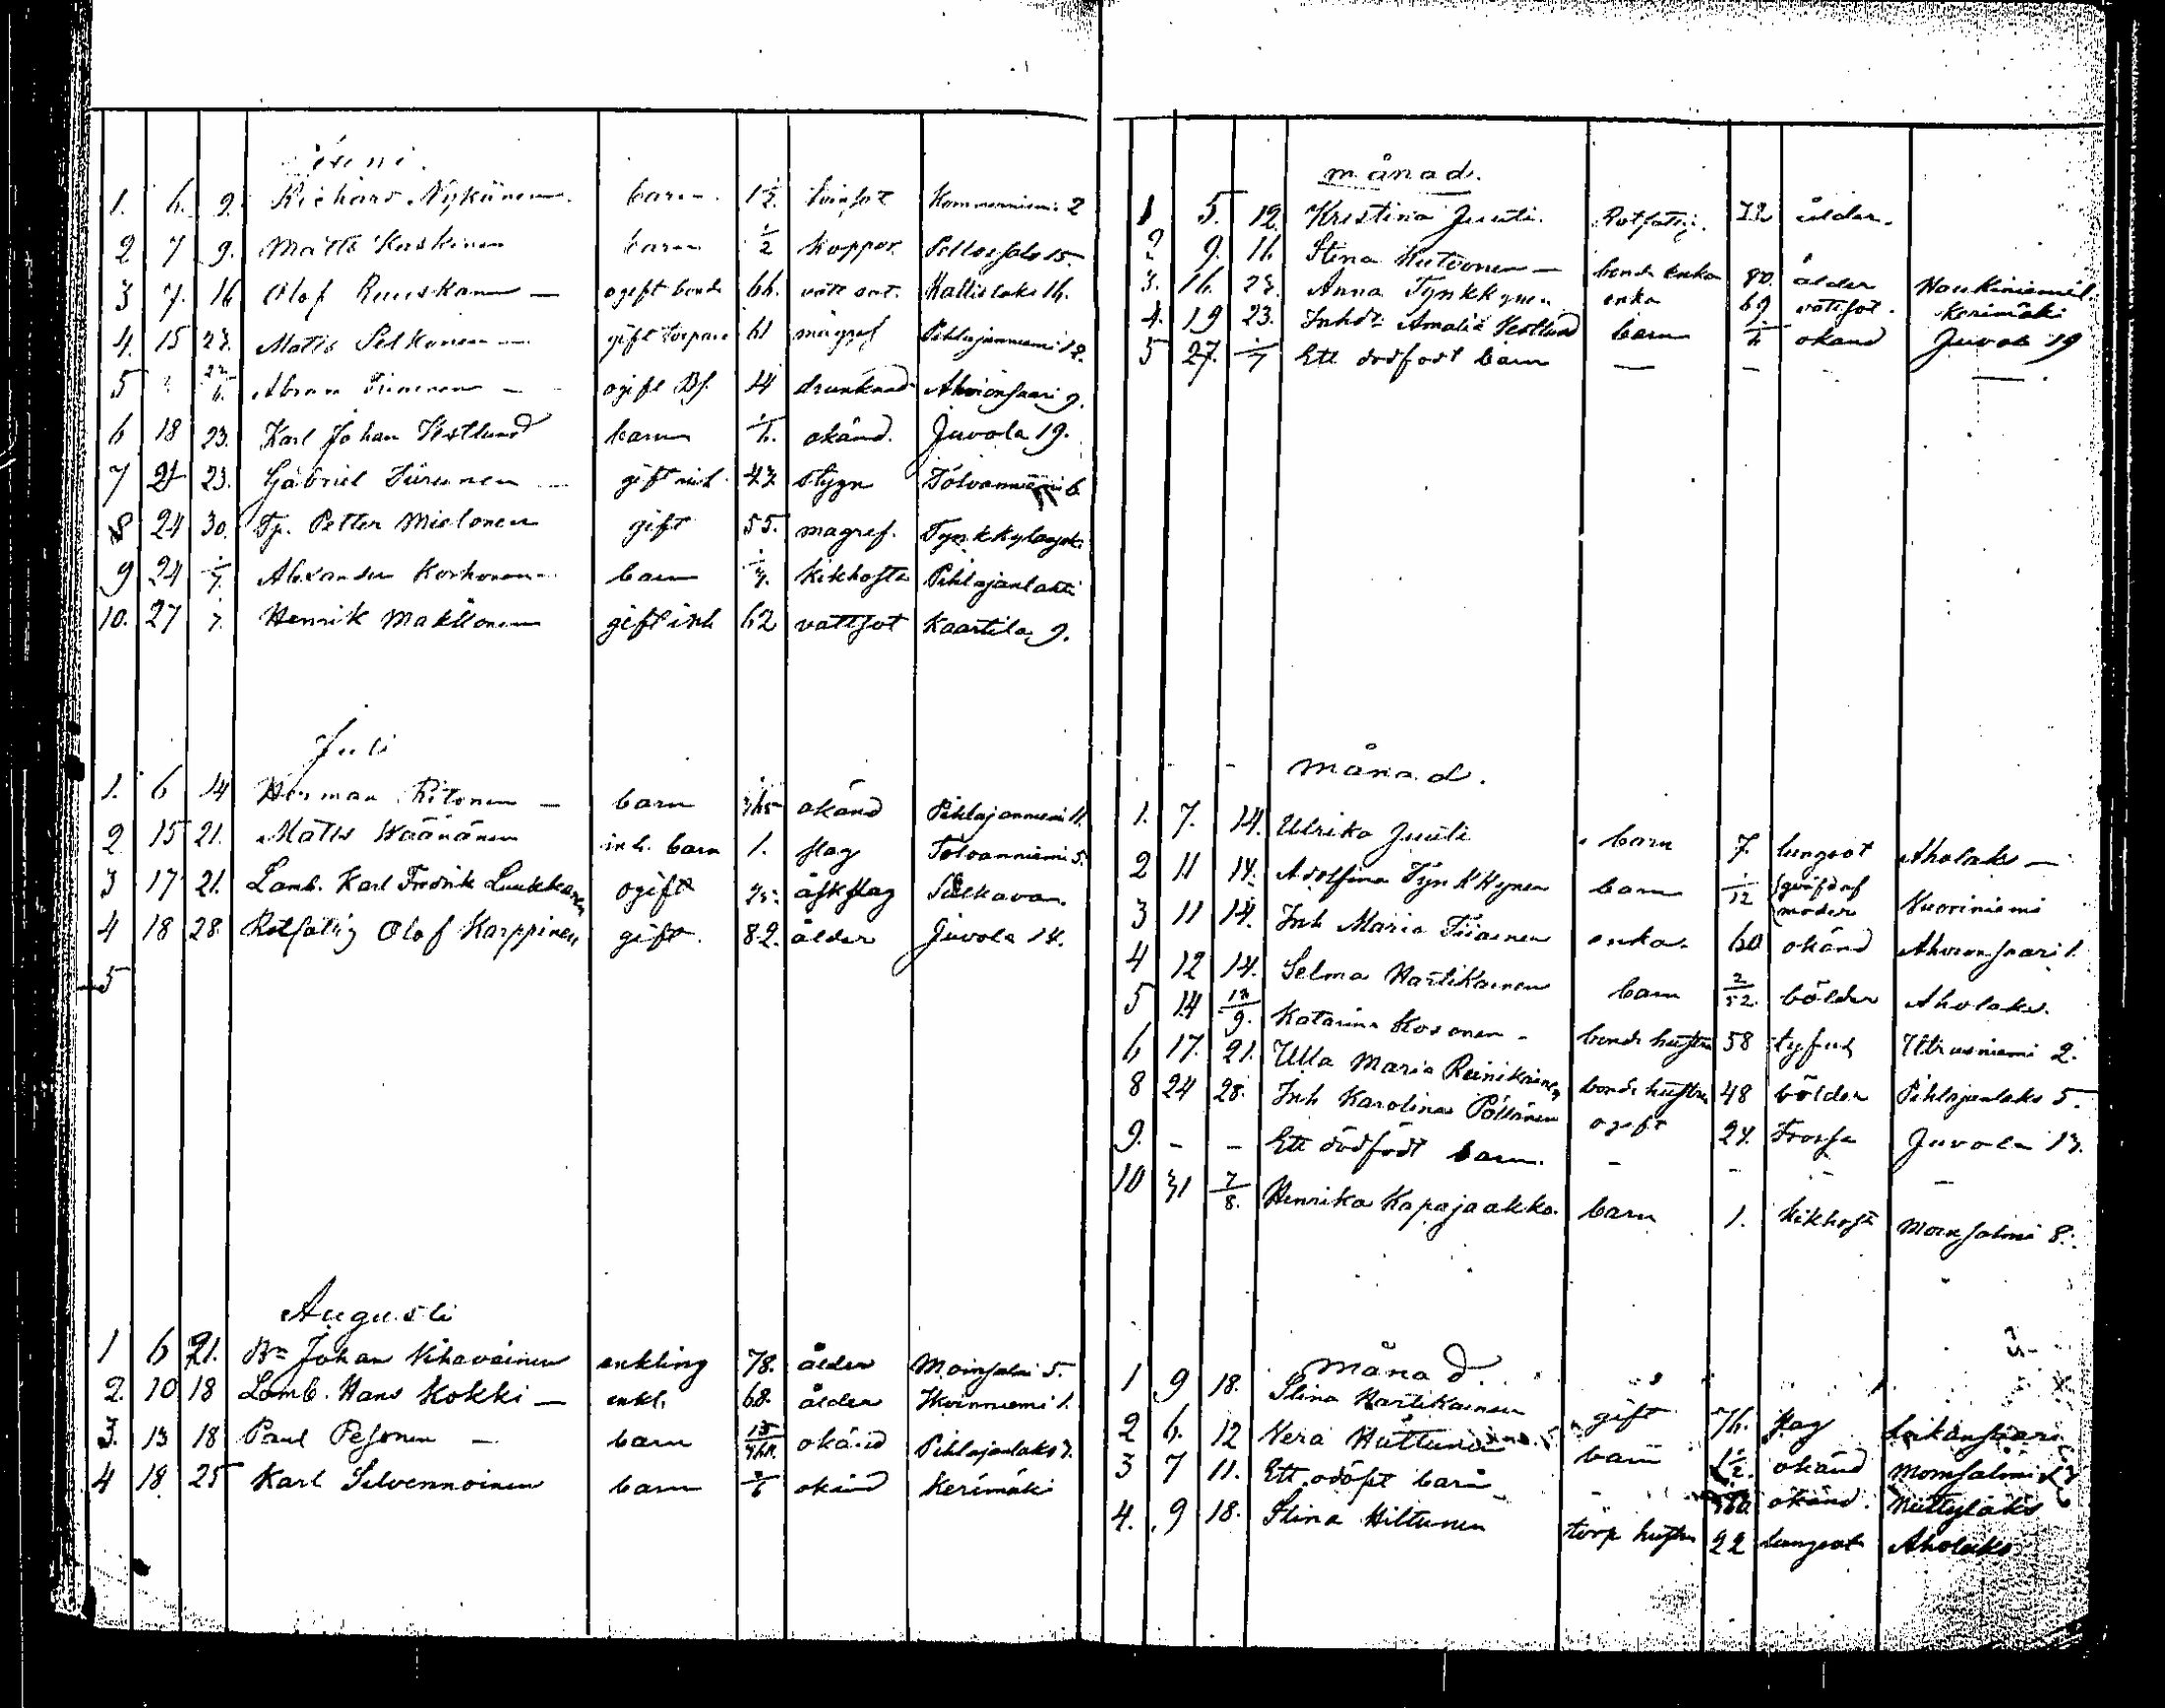 Juni
1. 6. 9. Richard Nykänen barn. 1½ Kommerniemi 2
2 7 9. Matts Kaskinen barn ½ koppor. Pellosalo 15.
3 7. 16 Olof Ruuskanen — ogift bonde 66. vattsot. Kallislaks 16.
4. 15 23. Matts Silkonen — gift torpare 61 magref Pihlajanniemi 12.
5 Abram Tiianen — ogift Bs. 14 drunknad Ahvionsaari 9.
6 18 23. Karl Johan Vestlund barn okänd. Juvola 19.
7 21 23. Gabriel Turunen — gift inh. 43 stygn Tolvanniemi 6
8 24 30. Tp. Petter Mielonen gift 55. magref. Tynkkylänjoki
9 24 1/7. Alexander Korhonen barn kikhosta Pihlajanlahti
10. 27 7. Henrik Makkonen gift inh 62 vattsot Kaartila 9.
Juli
1. 6 14 Herman Ritonen — barn okänd Pihlajanniemi 11.
2 15 21. Matts Wäänänen inh. barn 1. slag Tolvanniemi 5.
3 17 21. Lamb. Karl Fredrik Luukkanen ogift 25. åskslag Sulkava.
4 18 28. Rotfattig Olof Karppinen gift. 82. ålder Juvola 14.
5
Augusti
1 6 21. Bn Johan Kihavainen enkling 78. ålder Moinsalmi 5.
2. 10 18 Lamb. Hans Kokki — enkl. 68. ålder Ikoinniemi 1.
3. 13 18 Paul Pesonen — barn 15/365. okänd Pihlajanlaks 7.
4 18 25 Karl Silvennoinen barn okänd Kerimäki
månad.
1 5. 12. Kristina Juuti. Rotfattig. 72 ålder.
2 9. 16 Stina Hutvonen — bonde enka 80. ålder Haukiniemi
3. 16. 23. Anna Tynkkynen enka 69 vattsot. Kerimäki
4. 19 23. Inhds Amalia Vestlund barn okänd Juvola 19
5 27. 1/7 Ett dödfödt barn — — —
månad.
1. 7. 14. Ulrika Juuti barn 7. lungsot Aholaks —
2 11 14. Adolfina Tynkkynen barn 1/12 qväfd af moder Vuoriniemi
3 11 14. Inh Maria Tiianen enka. 60 okänd Ahvionsaari 1.
4 12 14. Selma Hartikainen barn 2/52. bölder Aholaks.
5 14 13/9. Katarina Kosonen — bonde hustru 58 tyfus Utrasniemi 2.
6 17. 21. Ulla Maria Reinikainen bonde hustru 48 bölder Pihlajanlaks 5.
8 24 28. Inh Karolina Pöllänen ogift 24. Frossa Juvola 13.
9. - - Ett dödfödt barn. - - - —
10 31 7/8. Henrika Kapajaakko. barn 1. kikhosta Moinsalmi 8.
månad.
1 9 18. Stina Hartikainen gift 76. slag
2 6. 12 Vera Huttunen barn 1½. okänd Moinsalmi
3 7 11. Ett odöpt barn - okänd. Muttylaks
4. 9 18. Stina Hiltunen torp hustru 22 lungsot Aholaks